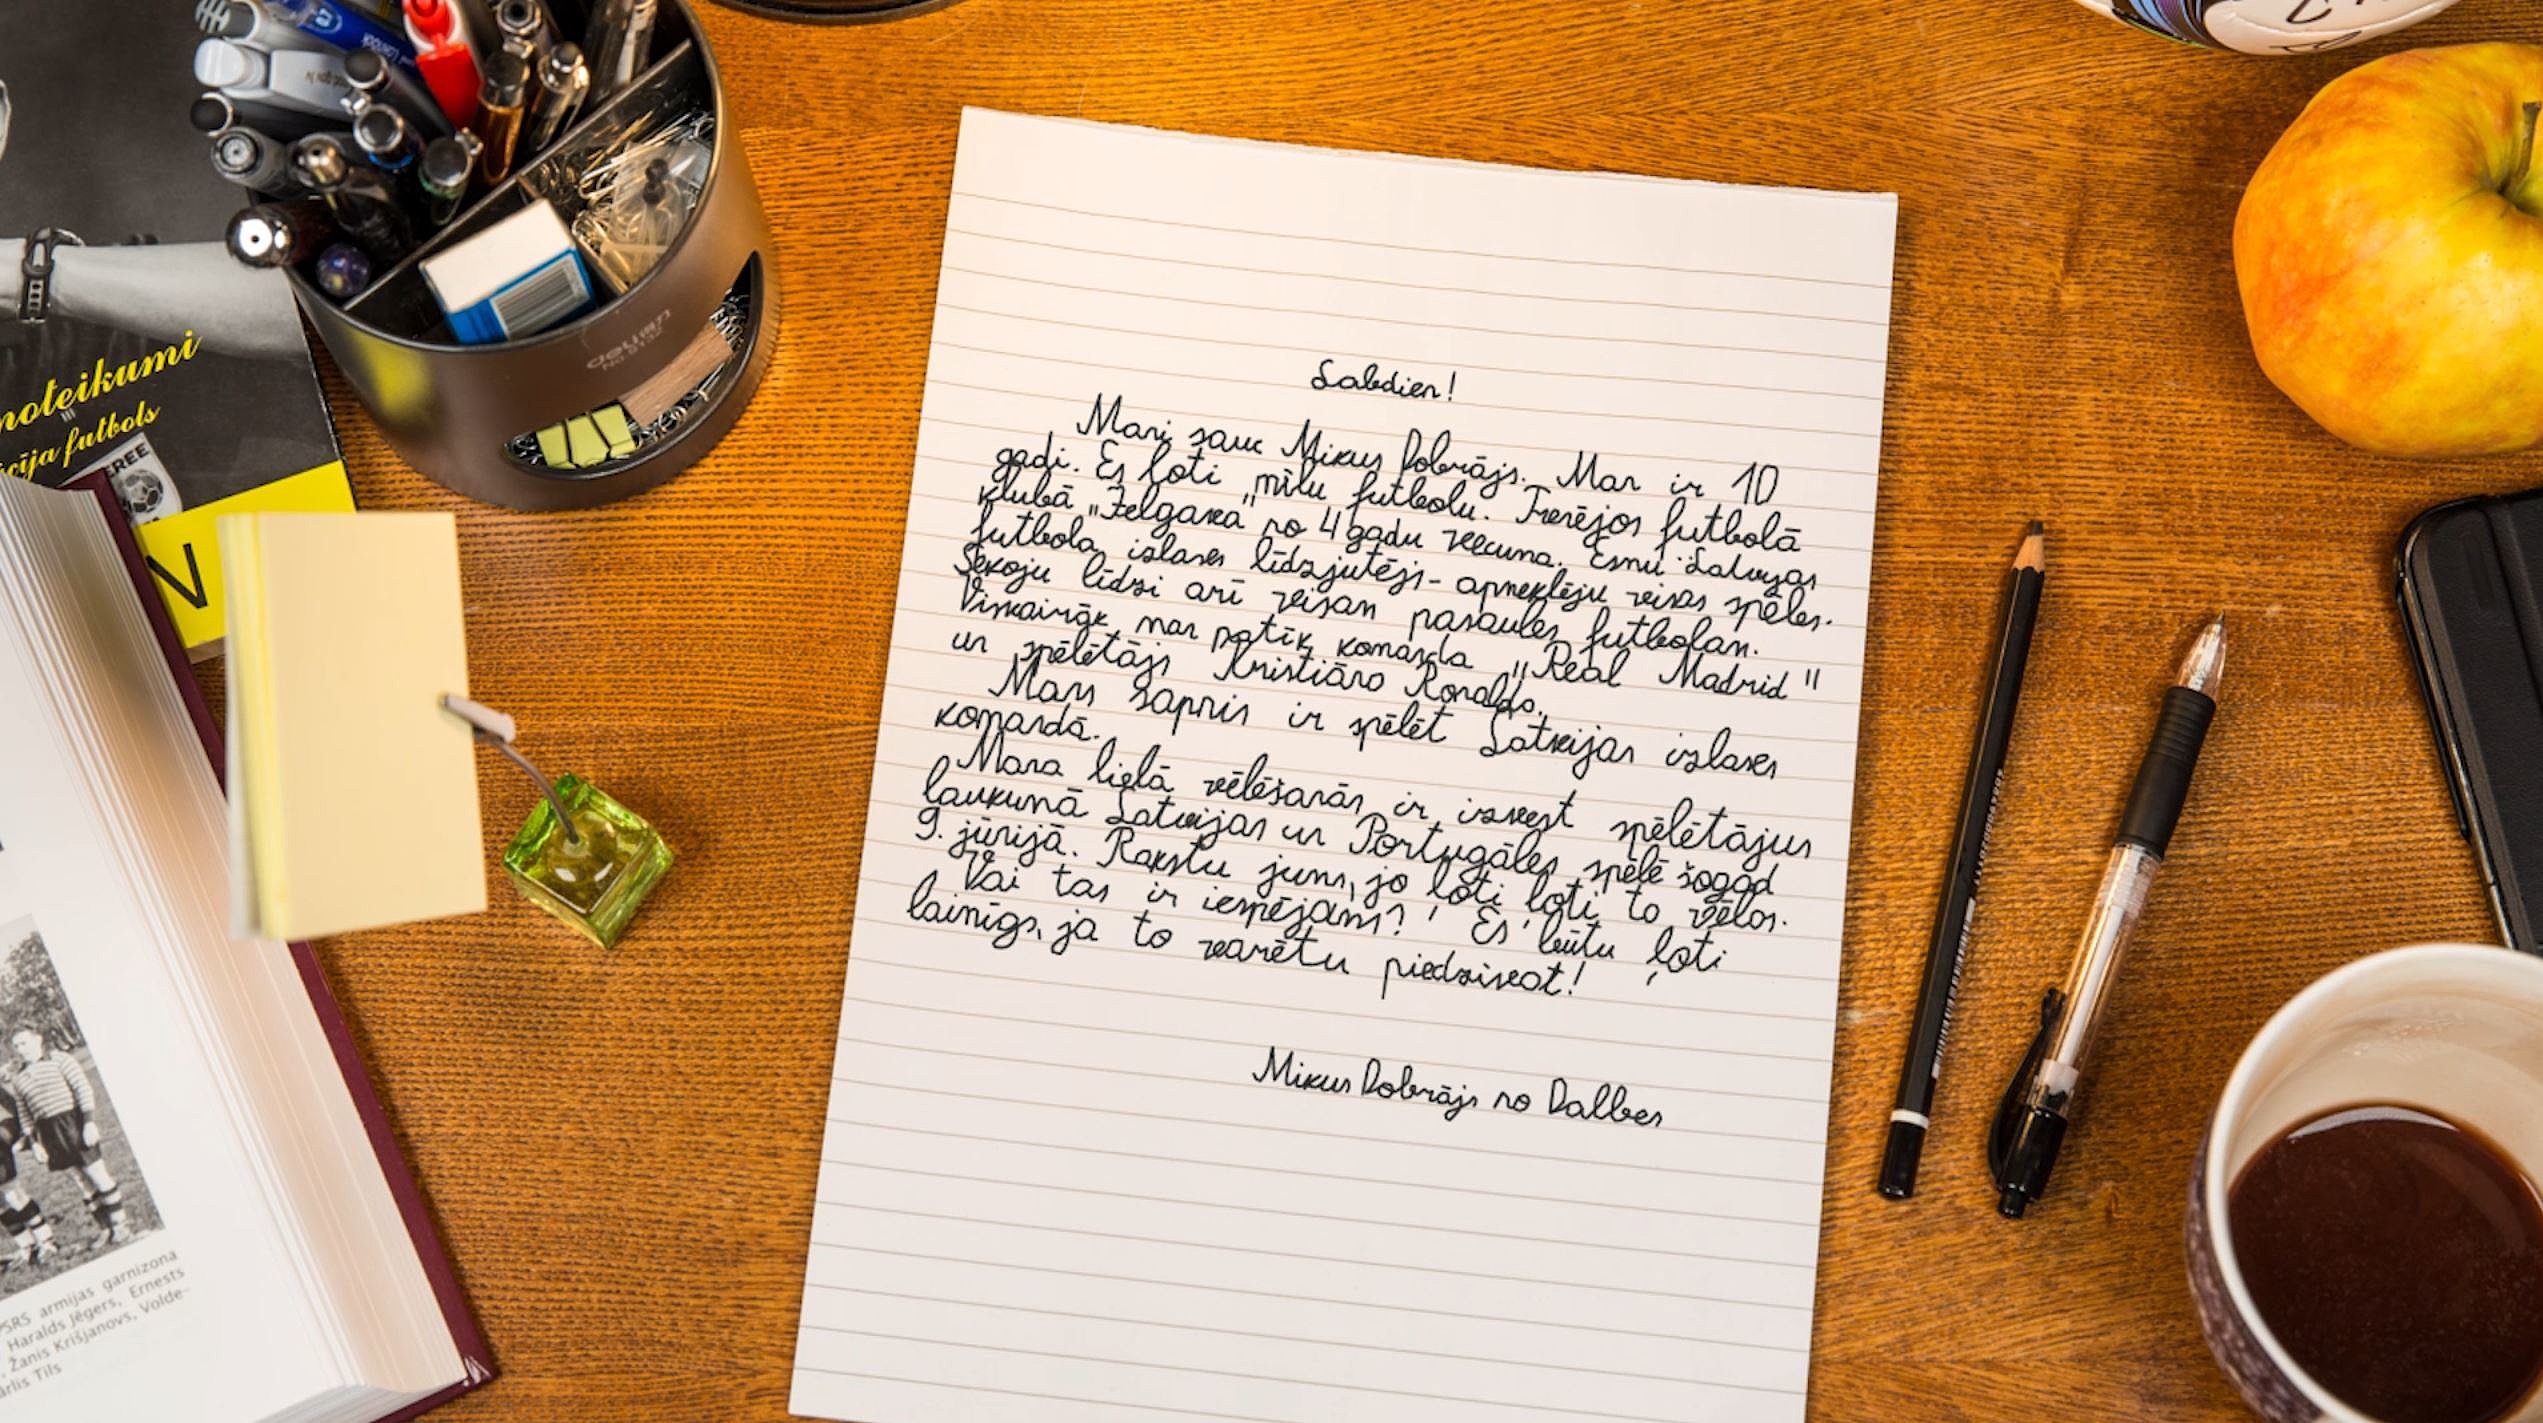 noteikumi
cīja futbols
REFEREE
V
deli
No 9132
Labdien!
Mani sauc Mikus Dobrājs. Man ir 10
gadi. Es ļoti mīlu futbolu. Trenējos futbolā
klubā "Jelgava" no 4 gadu vecuma. Esmu Latvijas
futbola izlases līdzjutējs - apmeklēju visas spēles.
Sekoju līdzi arī visam pasaules futbolam.
Visvairāk man patīk komanda "Real Madrid"
un spēlētājs Kristiāno Ronaldo.
Mans sapnis ir spēlēt Latvijas izlases
komandā.
Mana lielā vēlēšanās ir izvest spēlētājus
laukumā Latvijas un Portugāles spēlē šogad
9. jūnijā. Rakstu jums, jo ļoti ļoti to vēlos.
Vai tas ir iespējams? Es būtu ļoti
laimīgs, ja to varētu piedzīvot!
Mikus Dobrājs no Dalbes
PSRS armijas garnizona
Haralds Jēgers, Ernests
Žanis Krišjanovs, Volde-
ārlis Tils